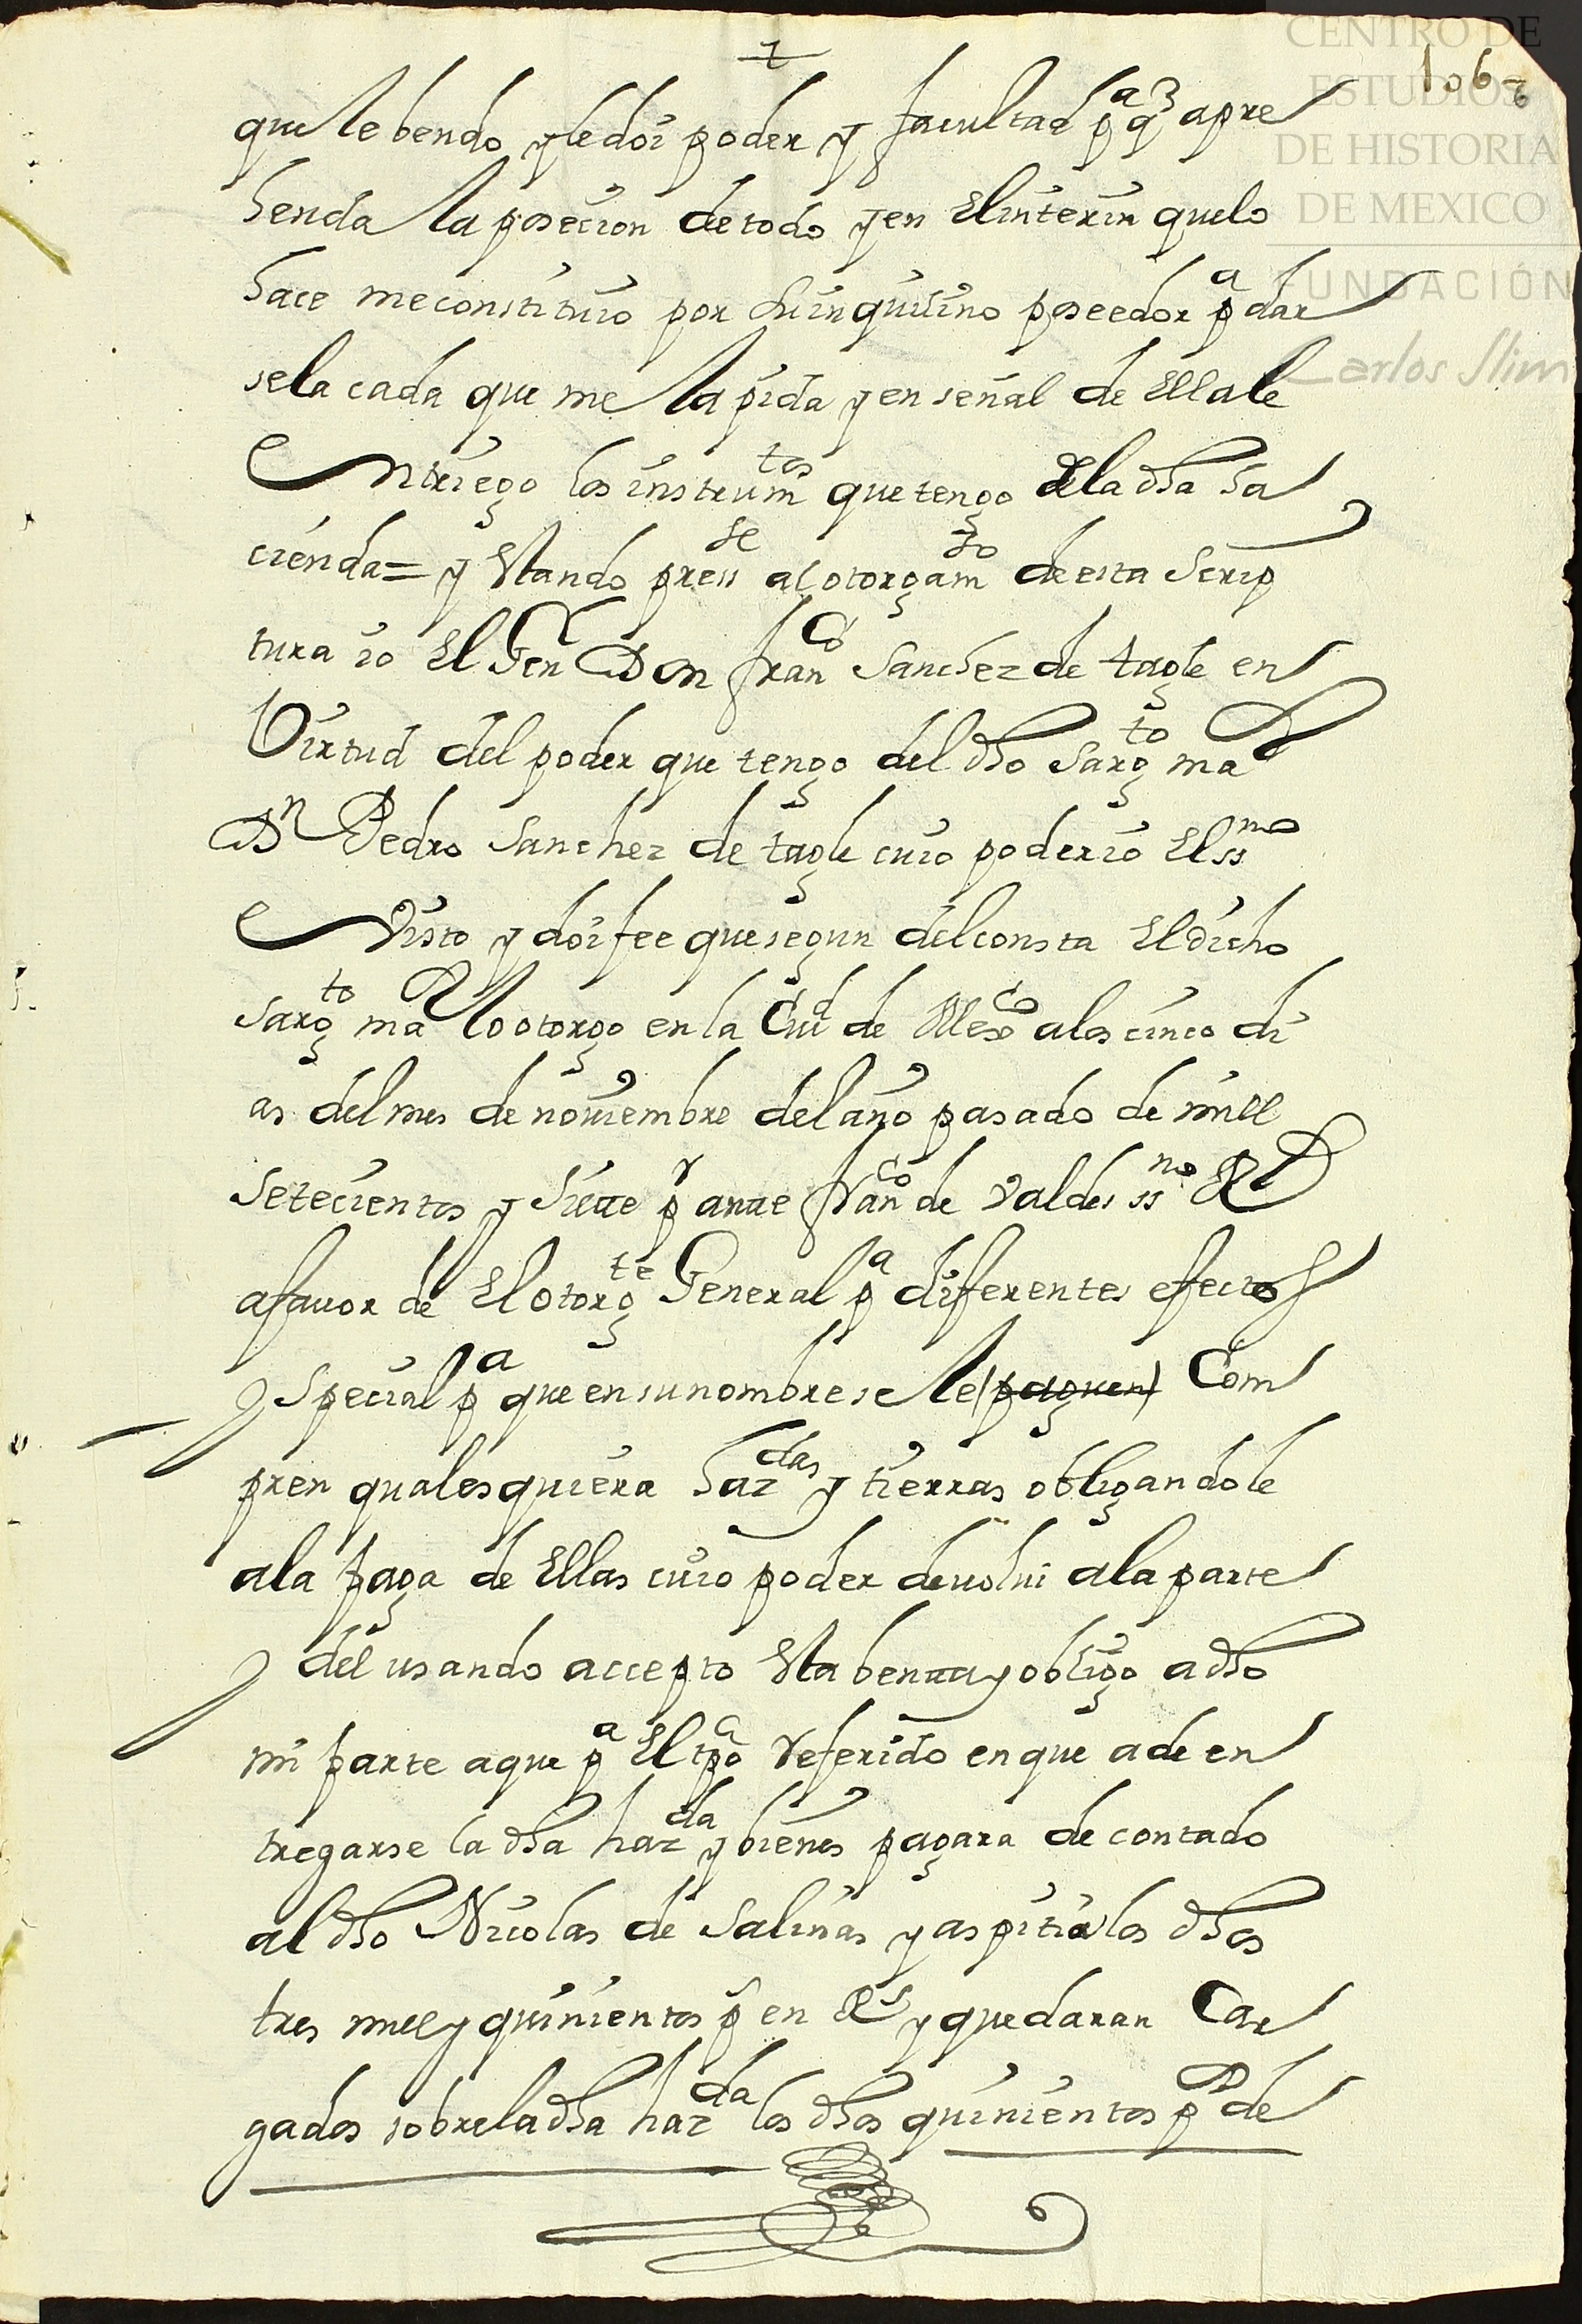 CENTRO DE
ESTUDIOS
DE HISTORIA
DE MEXICO
FUNDACIÓN
Carlos Slim
106
que le bendo y le doi poder y facultad pa q apre
henda la posecion de todo y en El interin que lo
hace me constituio por su inquilino poseedor pa dar
sela cada que me la pida y en señal de Ella le
Entriego los instrumtos que tengo de la dha ha
cienda = y Estando presse al otorgamto de esta Scrip
tura io El Gen Don franco Sanchez de tagle en
Virtud del poder que tengo del dho Sargto maor
Dn Pedro Sanchez de tagle cuio poder io El ssno
E Visto y doi fee que segun del consta El dicho
Sargto maor lo otorgo en la Ciud de Mexco a los cinco di
as del mes de noviembre del año pasado de mill
Setecientos y Siette pr antte franco de Valdes ssno Rl
a favor de El otorgte General pa diferentes efectos
y Special pa que en su nombre se le (paguen) Com
pren qualesquiera hazdas y tierras obligandole
a la paga de Ellas cuio poder devolvi a la parte
y del usando accepto Esta bentta y obligo a dho
mi parte a que pa El tpo referido en que a de en
tregarse la dha hazda y bienes pagara de contado
al dho Nicolas de Salinas y aspitia los dhos
tres mill y quinientos ps en Rs y quedaran Car
gados sobre la dha hazda los dhos quinientos ps de